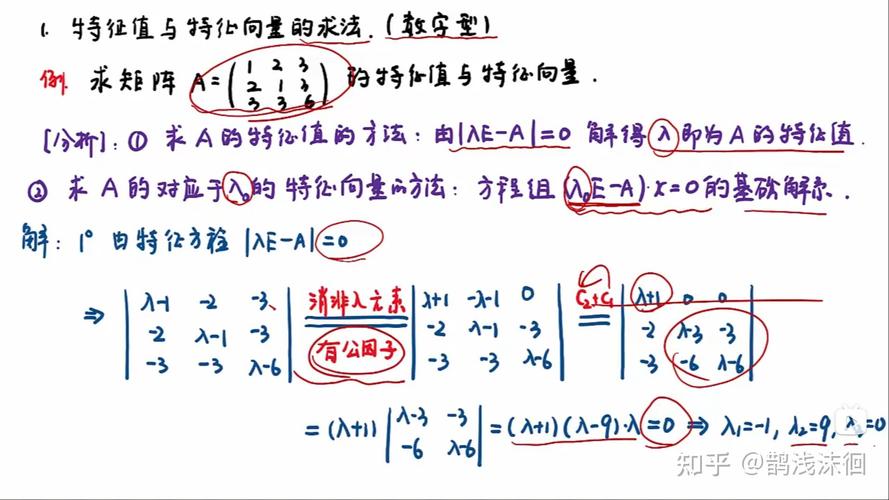 1. 特征值与特征向量的求法.(数字型)
例. 求矩阵 A=(1 2 3
2 1 3
3 3 6) 的特征值与特征向量.
[分析]: ① 求 A 的特征值的方法: 由|λE-A|=0 解得 λ 即为 A 的特征值.
② 求 A 的对应于λ₀的特征向量的方法: 方程组 (λ₀E-A)·x=0 的基础解系.
解: 1° 由特征方程 |λE-A|=0
⇒ |λ-1 -2 -3| 消非λ元素 |λ+1 -λ-1 0| C₂+C₁ |λ+1 0 0|
|-2 λ-1 -3| 有公因子 |-2 λ-1 -3| |-2 λ-3 -3|
|-3 -3 λ-6| |-3 -3 λ-6| |-3 -6 λ-6|
=(λ+1)|λ-3 -3
-6 λ-6| =(λ+1)(λ-9)·λ=0 ⇒ λ₁=-1, λ₂=9, =0
知乎 @鹊浅沫徊